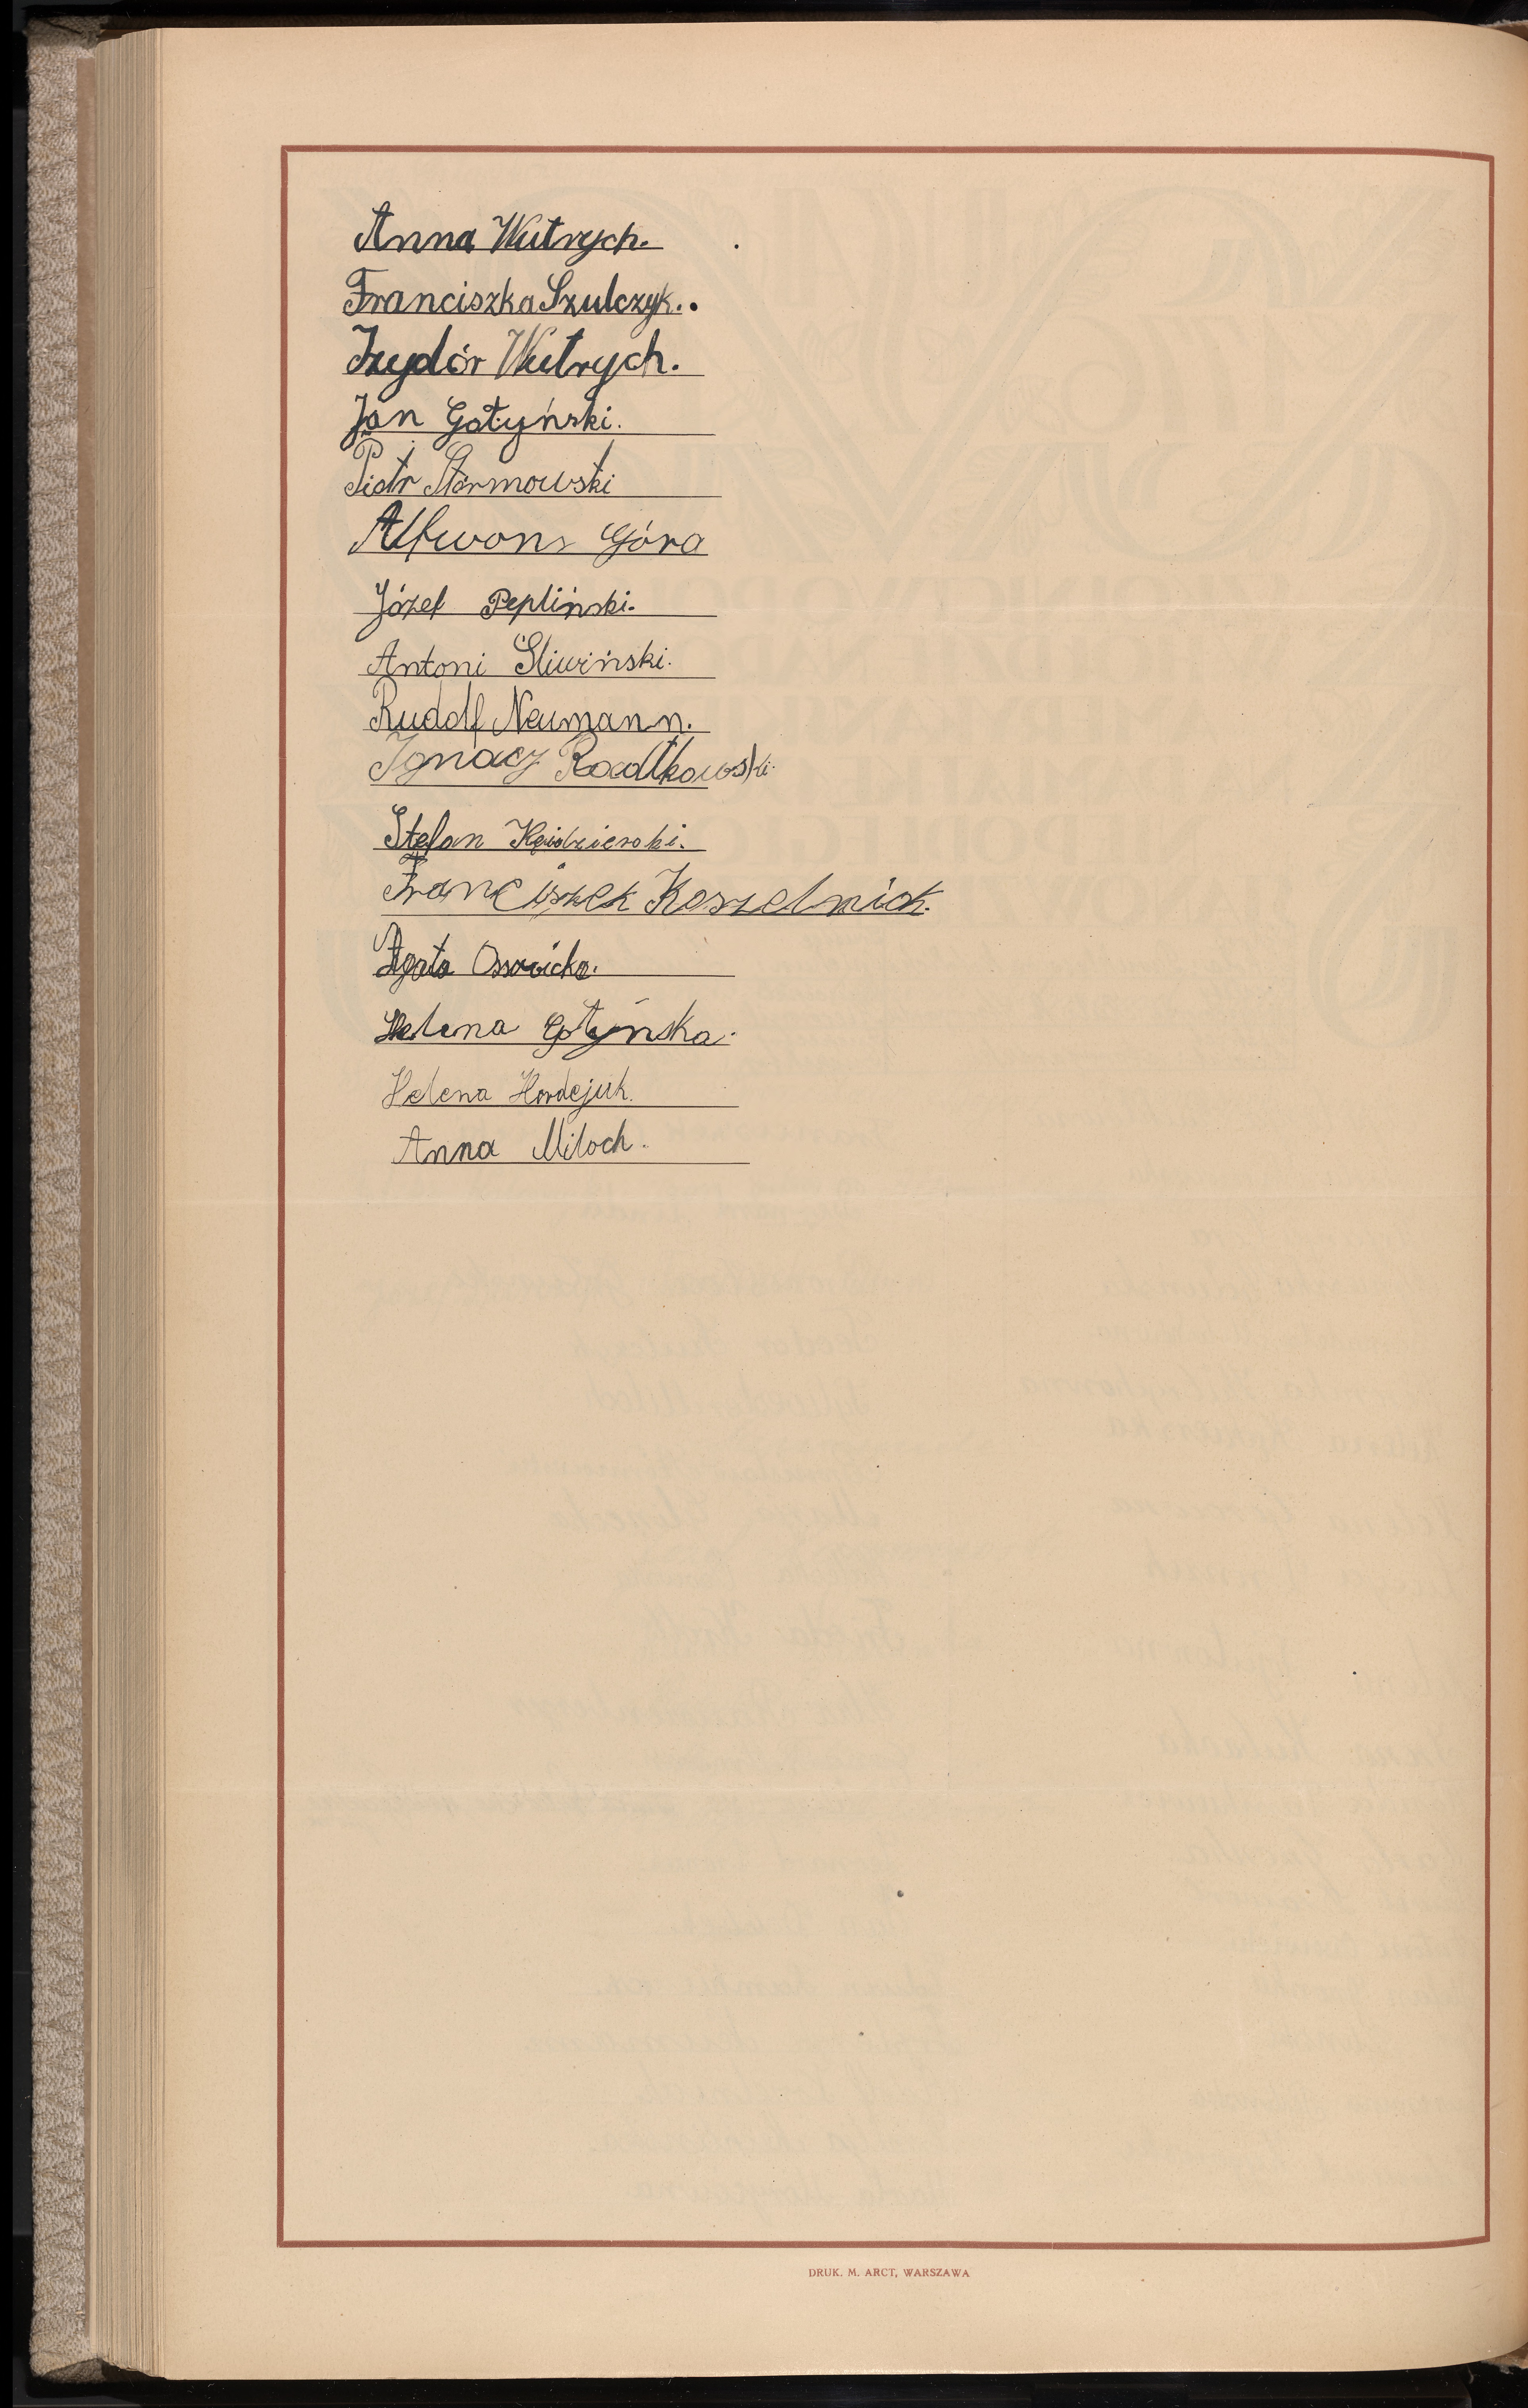 Anna Wutrych.
Franciszka Szulczyk.
Izydór Wutrych.
Jan Gotyński.
Piotr Stormowski
Alfwons Góra
Józef Pepliński.
Antoni Śliwiński.
Rudolf Neumann.
Ignacy Radtkowski.
Stefan Kędzierski.
Franciszek Koszelnick.
Agata Ossowicka.
Helena Gotyńska.
Helena Hordejuk.
Anna Miłoch.
DRUK. M. ARCT, WARSZAWA